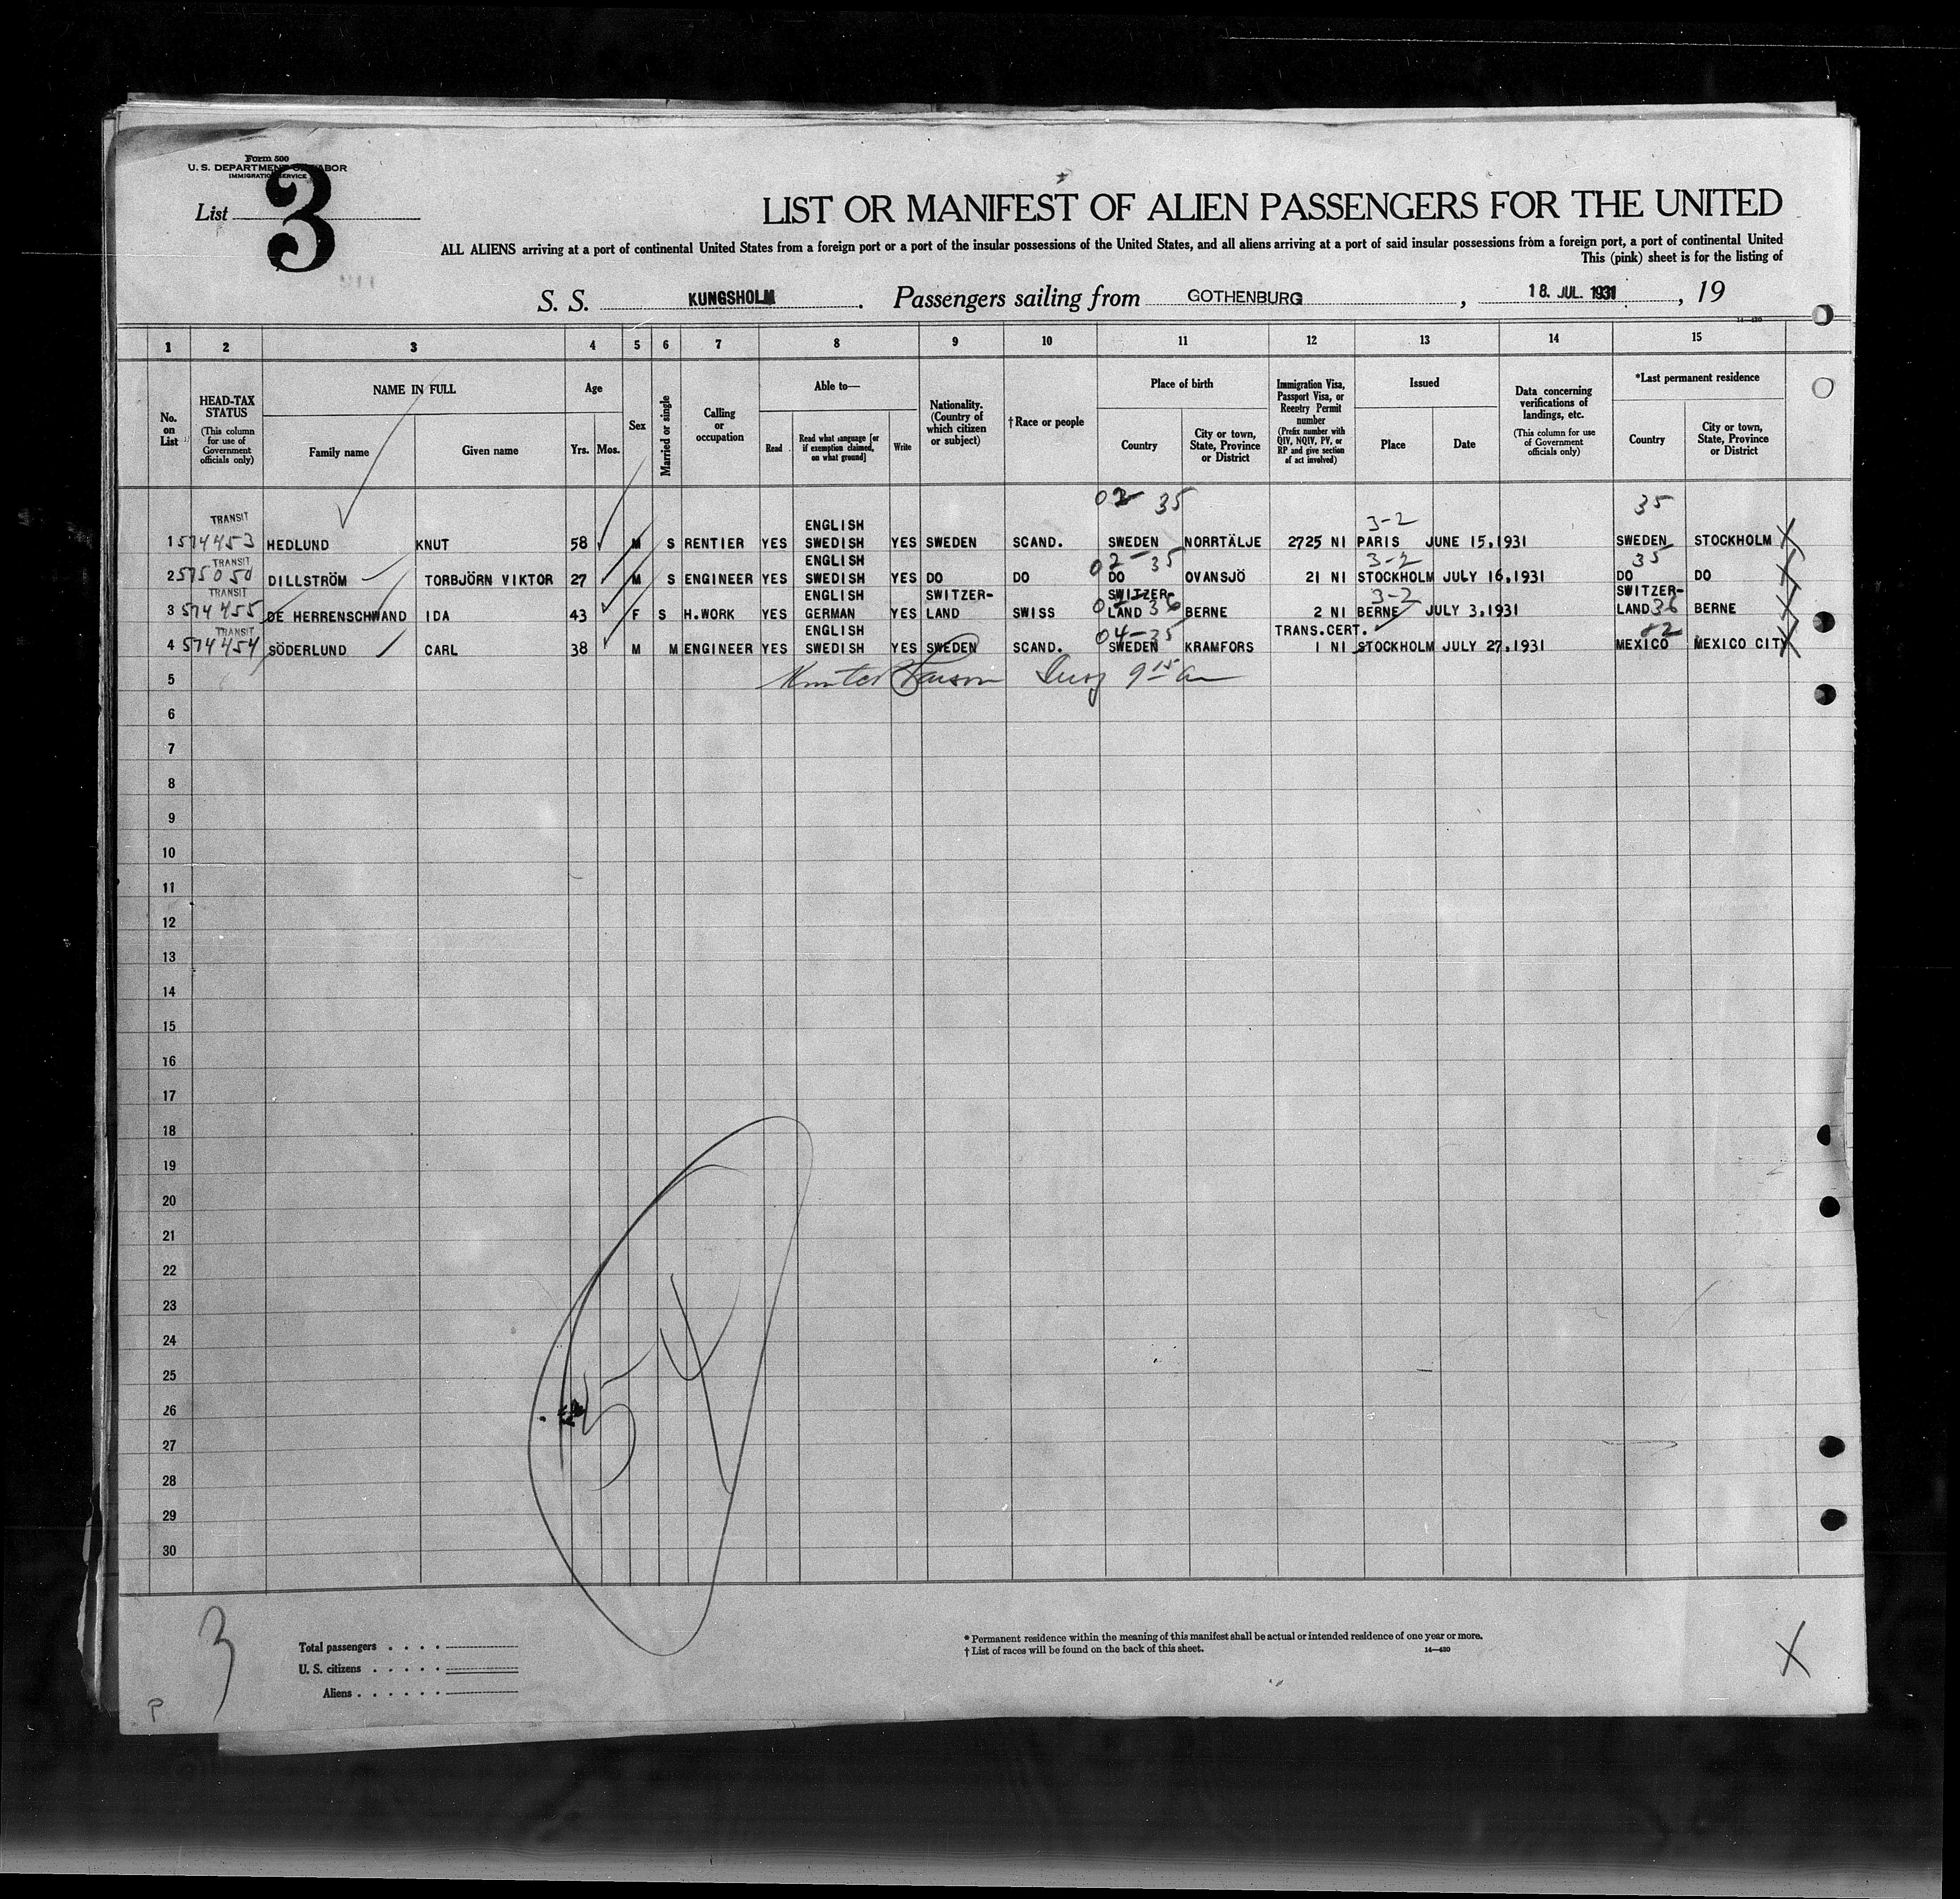 Form 500
U. S. DEPARTMENT OF LABOR
IMMIGRATION SERVICE
List 3
LIST OR MANIFEST OF ALIEN PASSENGERS FOR THE UNITED
ALL ALIENS arriving at a port of continental United States from a foreign port or a port of the insular possessions of the United States, and all aliens arriving at a port of said insular possessions from a foreign port, a port of continental United
This (pink) sheet is for the listing of
S. S. KUNGSHOLM. Passengers sailing from GOTHENBURG, 18. JUL. 1931, 19
1 2 3 4 5 6 7 8 9 10 11 12 13 14 15
No. on List
HEAD-TAX STATUS (This column for use of Government officials only)
NAME IN FULL
Family name Given name
Age
Yrs. Mos.
Sex
Married or single
Calling or occupation
Able to—
Read Read what language [or if exemption claimed, on what ground] Write
Nationality. (Country of which citizen or subject)
†Race or people
Place of birth
Country City or town, State, Province or District
Immigration Visa, Passport Visa, or Reentry Permit number (Prefix number with QIV, NQIV, PV, or RP and give section of act involved)
Issued
Place Date
Data concerning verifications of landings, etc. (This column for use of Government officials only)
*Last permanent residence
Country City or town, State, Province or District
02 35 35
TRANSIT ENGLISH 3-2
1 574453 HEDLUND KNUT 58 M S RENTIER YES SWEDISH YES SWEDEN SCAND. SWEDEN NORRTÄLJE 2725 NI PARIS JUNE 15,1931 SWEDEN STOCKHOLM X
TRANSIT ENGLISH 02-35 3-2 35
2 575050 DILLSTRÖM TORBJÖRN VIKTOR 27 M S ENGINEER YES SWEDISH YES DO DO DO OVANSJÖ 21 NI STOCKHOLM JULY 16,1931 DO DO X
TRANSIT ENGLISH SWITZER- SWITZER- 3-2 SWITZER-
3 574455 DE HERRENSCHWAND IDA 43 F S H.WORK YES GERMAN YES LAND SWISS LAND 36 BERNE 2 NI BERNE JULY 3,1931 LAND 36 BERNE X
TRANSIT ENGLISH 04-35 TRANS.CERT. 82
4 574454 SÖDERLUND CARL 38 M M ENGINEER YES SWEDISH YES SWEDEN SCAND. SWEDEN KRAMFORS 1 NI STOCKHOLM JULY 27,1931 MEXICO MEXICO CITY X
5
6
7
8
9
10
11
12
13
14
15
16
17
18
19
20
21
22
23
24
25
26
27
28
29
30
3
Total passengers
U. S. citizens
Aliens
* Permanent residence within the meaning of this manifest shall be actual or intended residence of one year or more.
† List of races will be found on the back of this sheet. 14—430
X
P